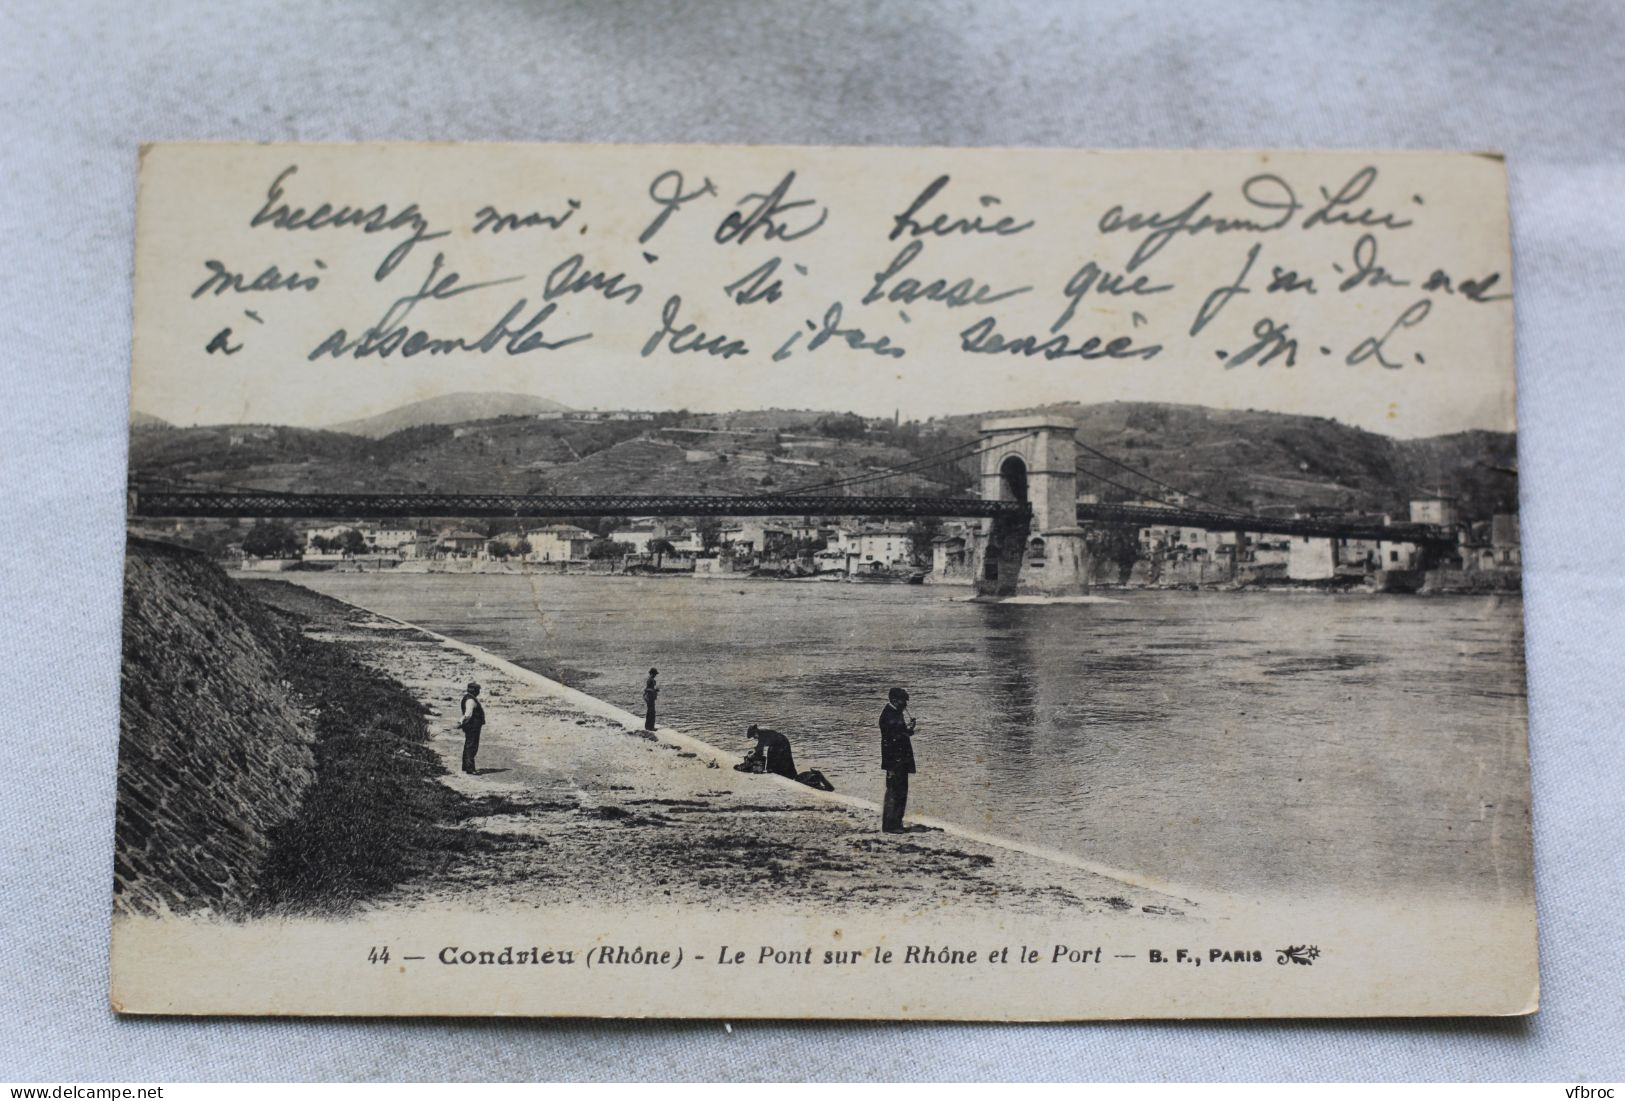 Excusez moi. d'être brève aujourd'hui
mais je suis si lasse que j'ai du mal
à assembler deux idées sensées. M. L.
44 — Condrieu (Rhône) - Le Pont sur le Rhône et le Port — B. F., PARIS
vfbroc